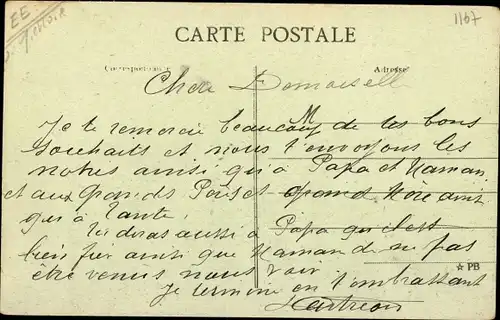 EE
1167
CARTE POSTALE
Correspondance
Adresse
Chere Demoiselle
M
Je te remercie beaucoup de tes bons
souhaits et nous t'envoyons les
notres ainsi qu'à Papa et Maman
et aux Grands Pères et Grand Mère ainsi
qu'à Tante.
Tu diras aussi à Papa qu'il est
bien fier ainsi que Maman de ne pas
être venus nous voir
Je termine en t'embrassant
☆ PB